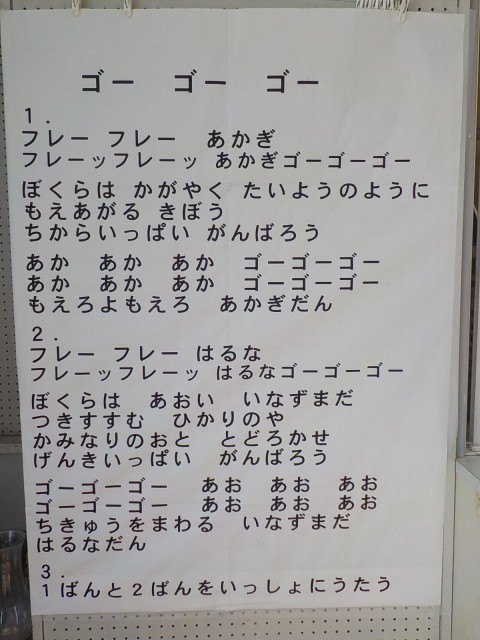 ゴー　ゴー　ゴー
1.
フレー フレー　あかぎ
フレーッフレーッ あかぎゴーゴーゴー
ぼくらは かがやく たいようのように
もえあがる きぼう
ちからいっぱい がんばろう
あか　あか　あか　ゴーゴーゴー
あか　あか　あか　ゴーゴーゴー
もえろよもえろ　あかぎだん
2.
フレー フレー はるな
フレーッフレーッ はるなゴーゴーゴー
ぼくらは　あおい　いなずまだ
つきすすむ　ひかりのや
かみなりのおと　とどろかせ
げんきいっぱい　がんばろう
ゴーゴーゴー　あお　あお　あお
ゴーゴーゴー　あお　あお　あお
ちきゅうをまわる　いなずまだ
はるなだん
3.
1ばんと2ばんをいっしょにうたう